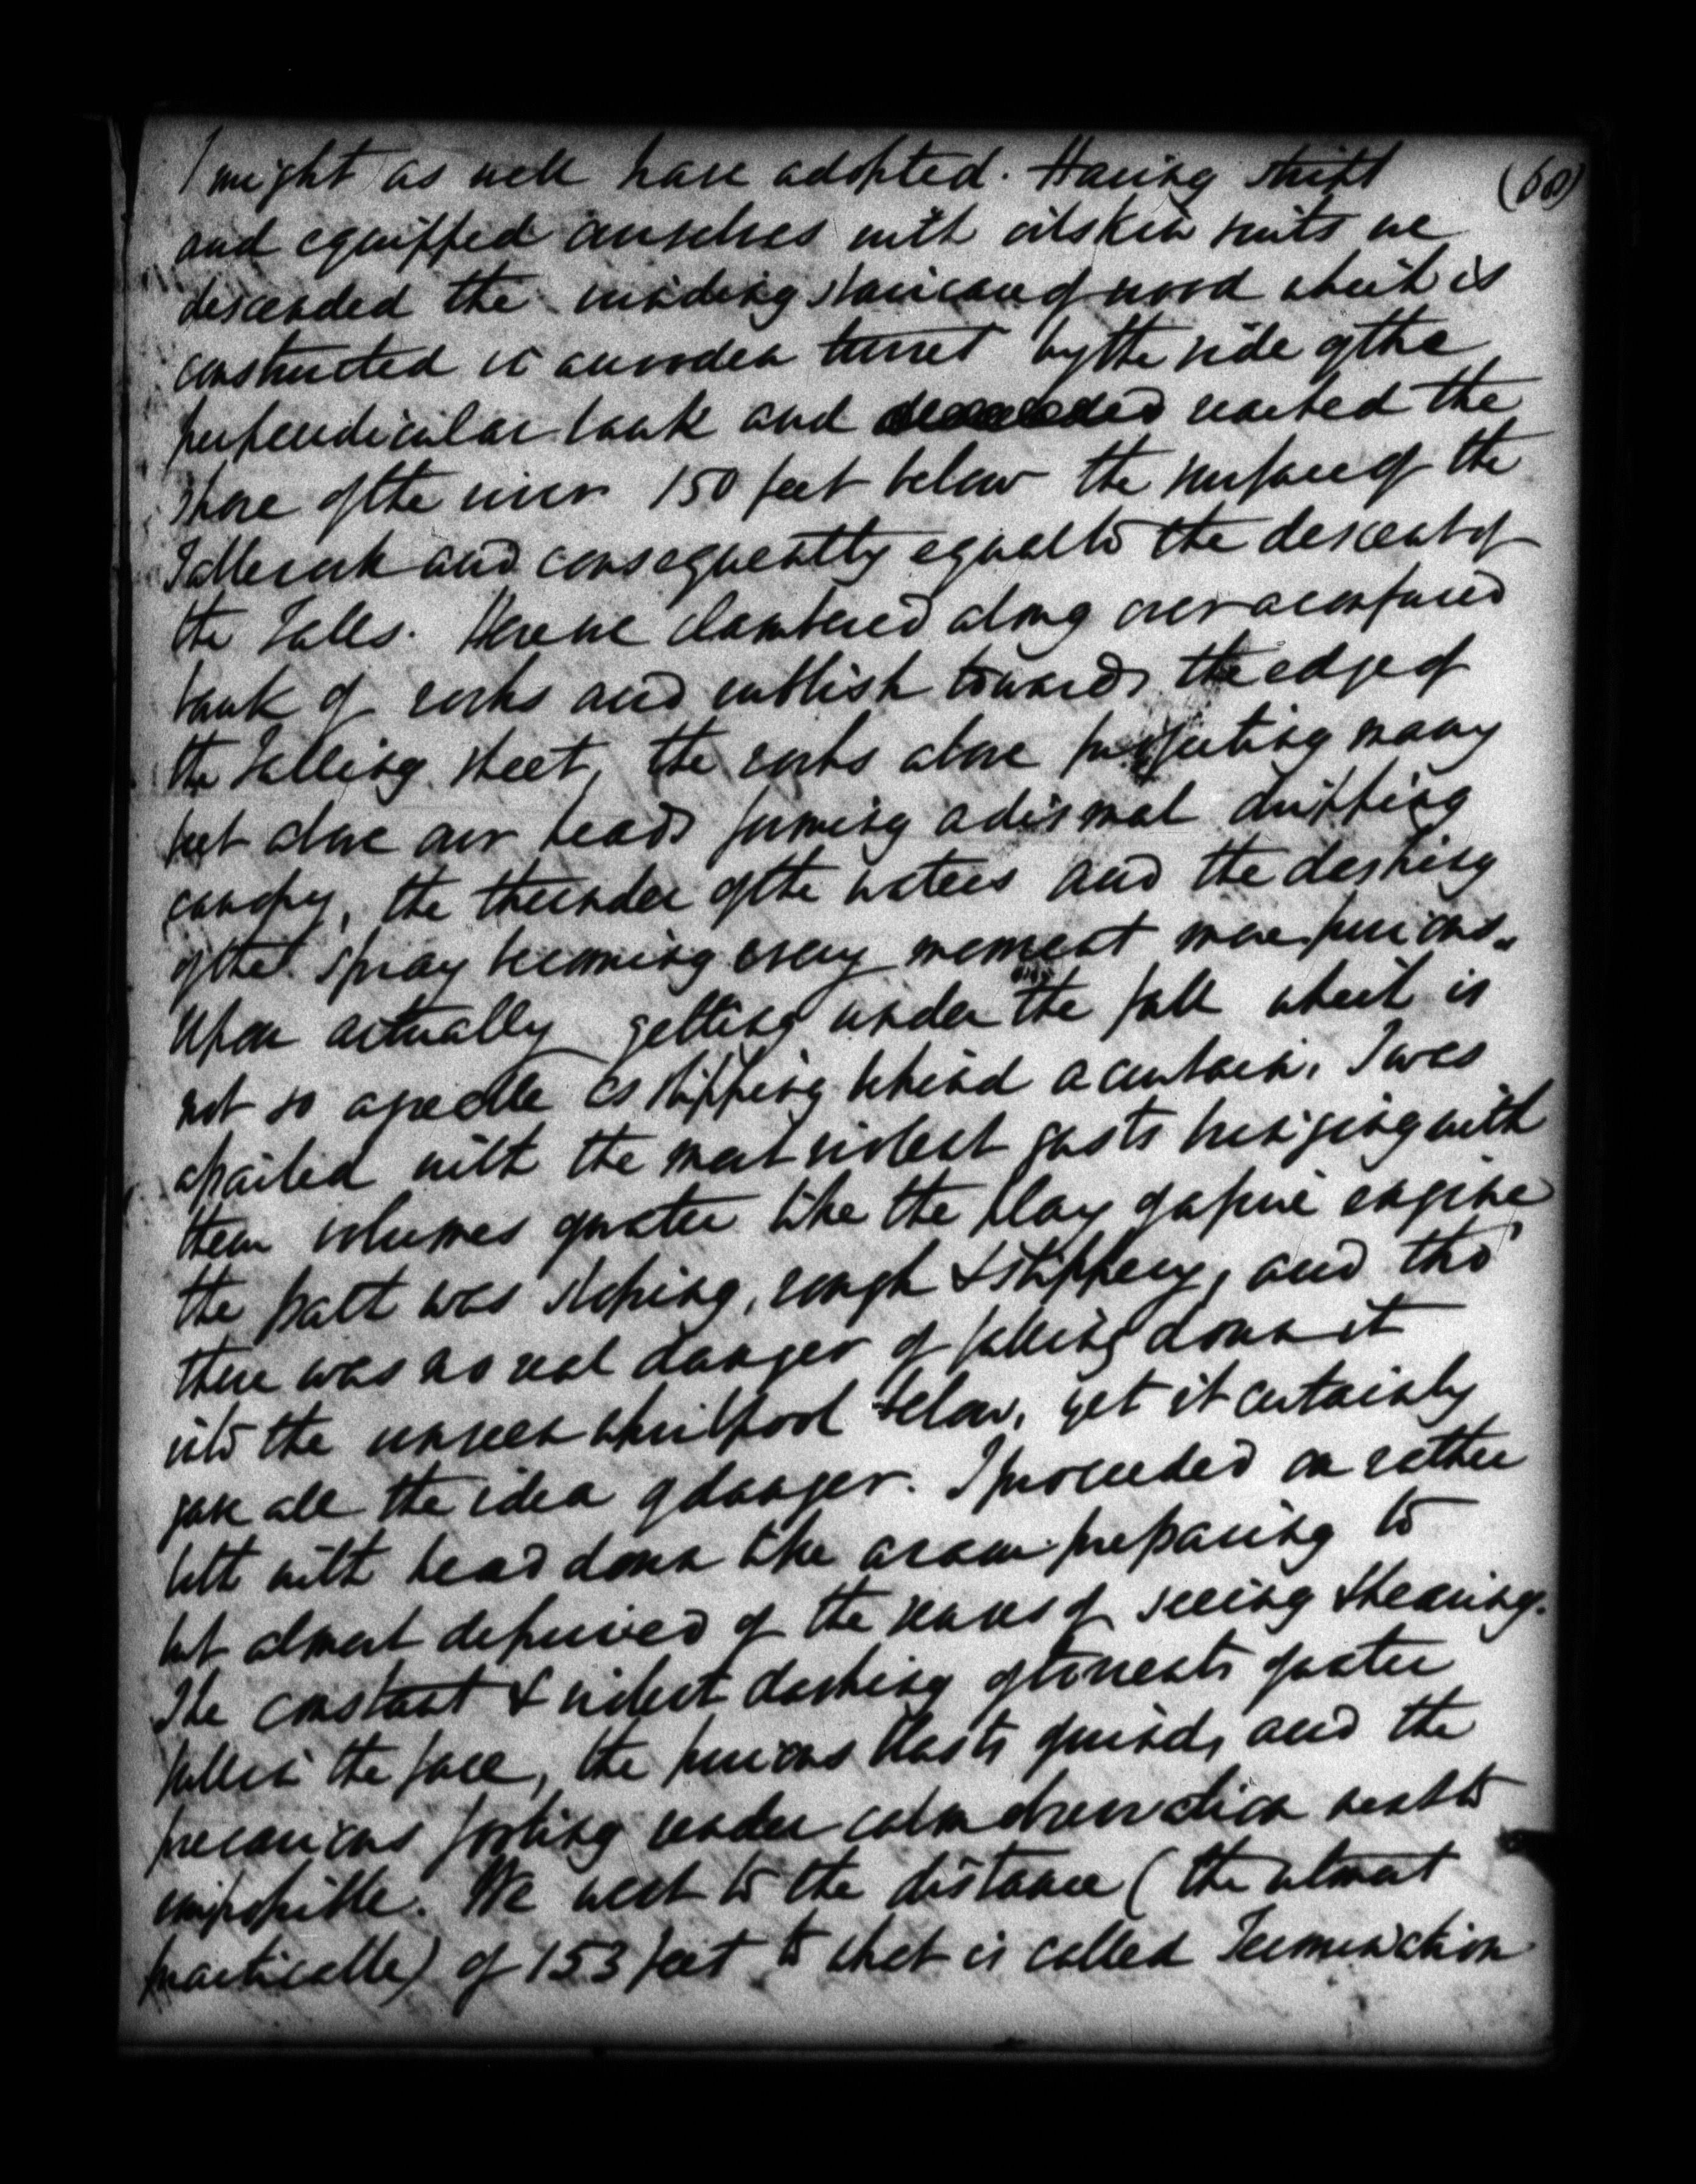 (60)
I might as well have adopted. Having stript
and equipped ourselves with oilskin suits we
descended the winding staircase of wood which is
constructed in a wooden turret by the side of the
perpendicular bank and reached the
shore of the river 150 feet below the surface of the
Tablerock and consequently equal to the descent of
the Falls. Here we clambered along over a confused
bank of rocks and rubbish towards the edge of
the Falling sheet, the rocks above projecting many
feet above our heads forming a dismal dripping
canopy, the thunder of the waters and the dashing
of the spray becoming every moment more furious.
Upon actually getting under the fall which is
not so agreeable as slipping behind a curtain, I was
assailed with the most violent gusts bringing with
them volumes of water like the play of a fire engine
the path was sloping, rough & slippery, and tho'
there was no real danger of falling down it
into the unseen whirlpool below, yet it certainly
gave all the idea of danger. I proceeded on rather
with head down like a ram preparing to
butt almost deprived of the senses of seeing & hearing.
The constant & violent dashing of torrents of water
full in the face, the furious blasts of wind, and the
precarious footing render calm observation next to
impossible. We went to the distance (the utmost
practicable) of 153 feet to what is called Termination